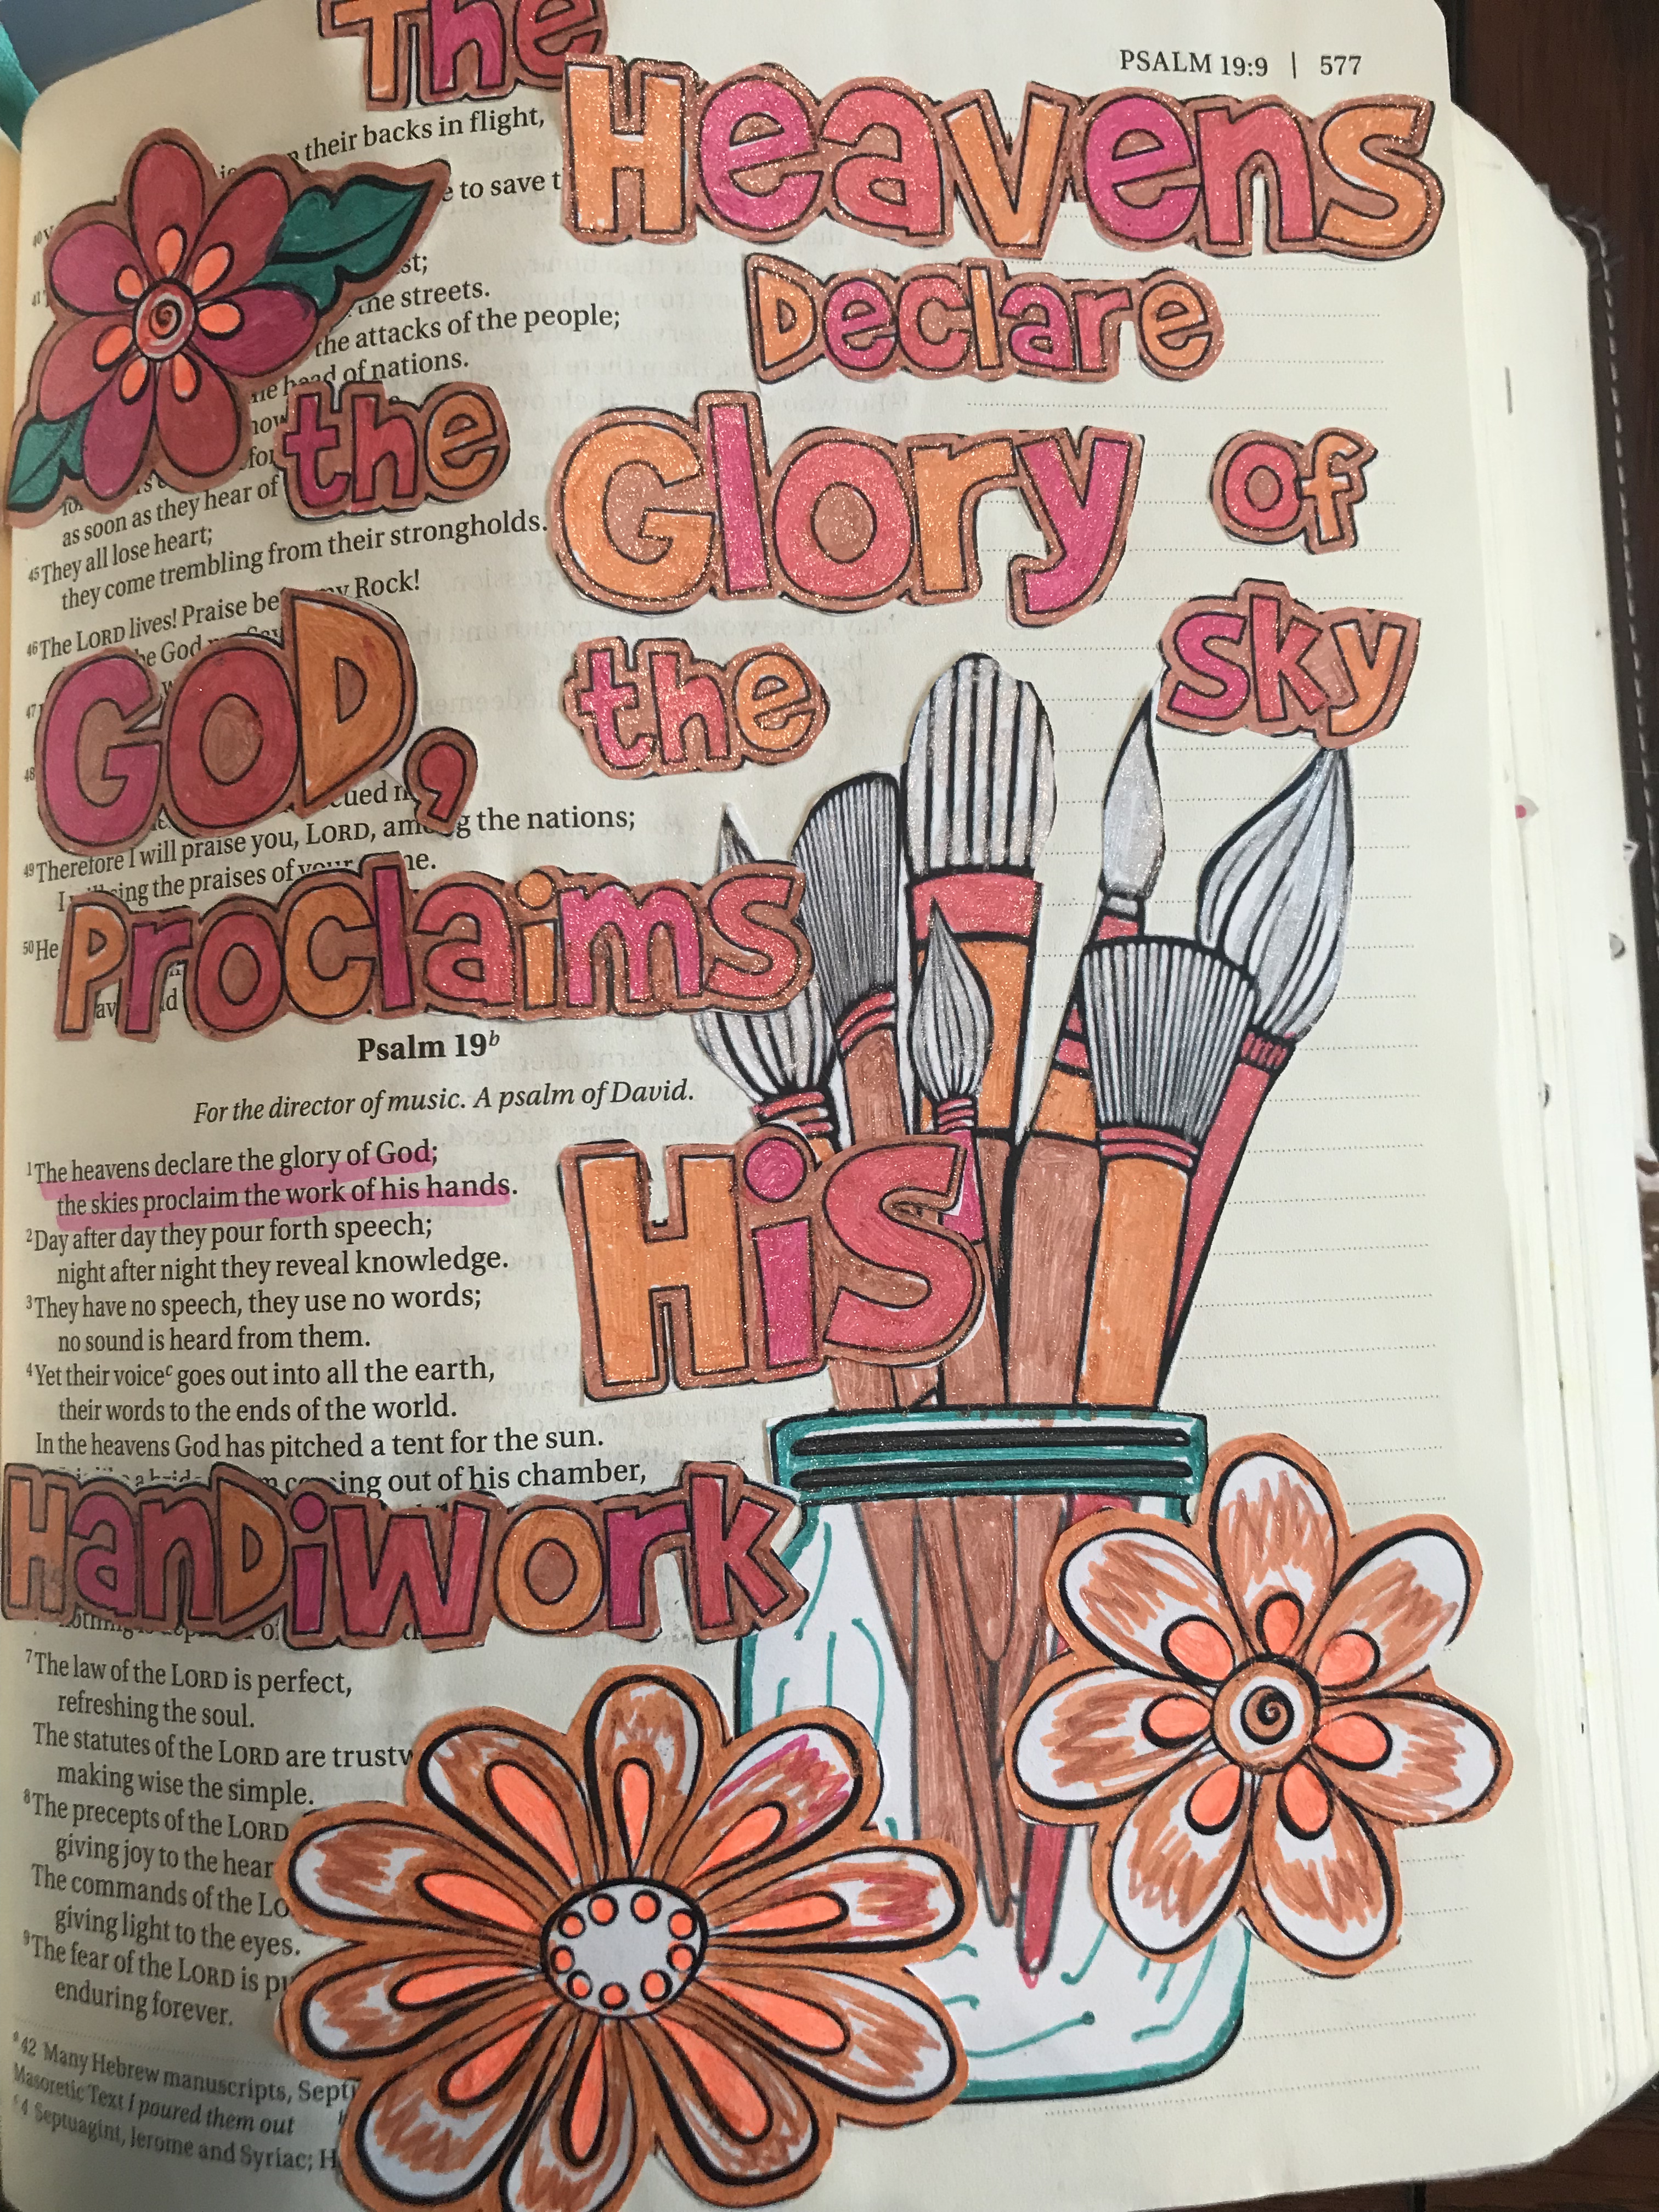 PSALM 19:9 | 577
The
Heavens
Declare
the Glory of
GOD, the sky
Proclaims
His
Handiwork
their backs in flight,
to save
the streets.
the attacks of the people;
head of nations.
as soon as they hear of
45 They all lose heart;
they come trembling from their strongholds.
46 The LORD lives! Praise be my Rock!
God
47
48
49 Therefore I will praise you, LORD, among the nations;
I sing the praises of your
50 He
Psalm 19b
For the director of music. A psalm of David.
1 The heavens declare the glory of God;
the skies proclaim the work of his hands.
2 Day after day they pour forth speech;
night after night they reveal knowledge.
3 They have no speech, they use no words;
no sound is heard from them.
4 Yet their voicec goes out into all the earth,
their words to the ends of the world.
In the heavens God has pitched a tent for the sun.
out of his chamber,
7 The law of the LORD is perfect,
refreshing the soul.
The statutes of the LORD are
making wise the simple.
8 The precepts of the LORD
giving joy to the
The commands of the
giving light to the eyes.
9 The fear of the LORD is
enduring forever.
a 42 Many Hebrew manuscripts,
Masoretic Text I poured them out
c 4 Septuagint, Jerome and Syriac;